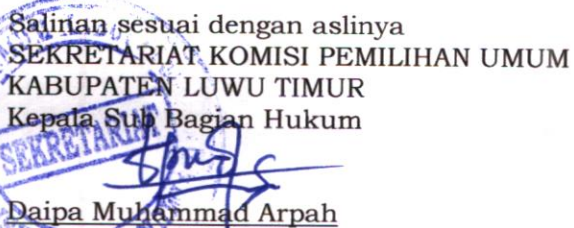 Salinan sesuai dengan aslinya
SEKRETARIAT KOMISI PEMILIHAN UMUM
KABUPATEN LUWU TIMUR
Kepala Sub Bagian Hukum
SEKRETARIAT
Daipa Muhammad Arpah